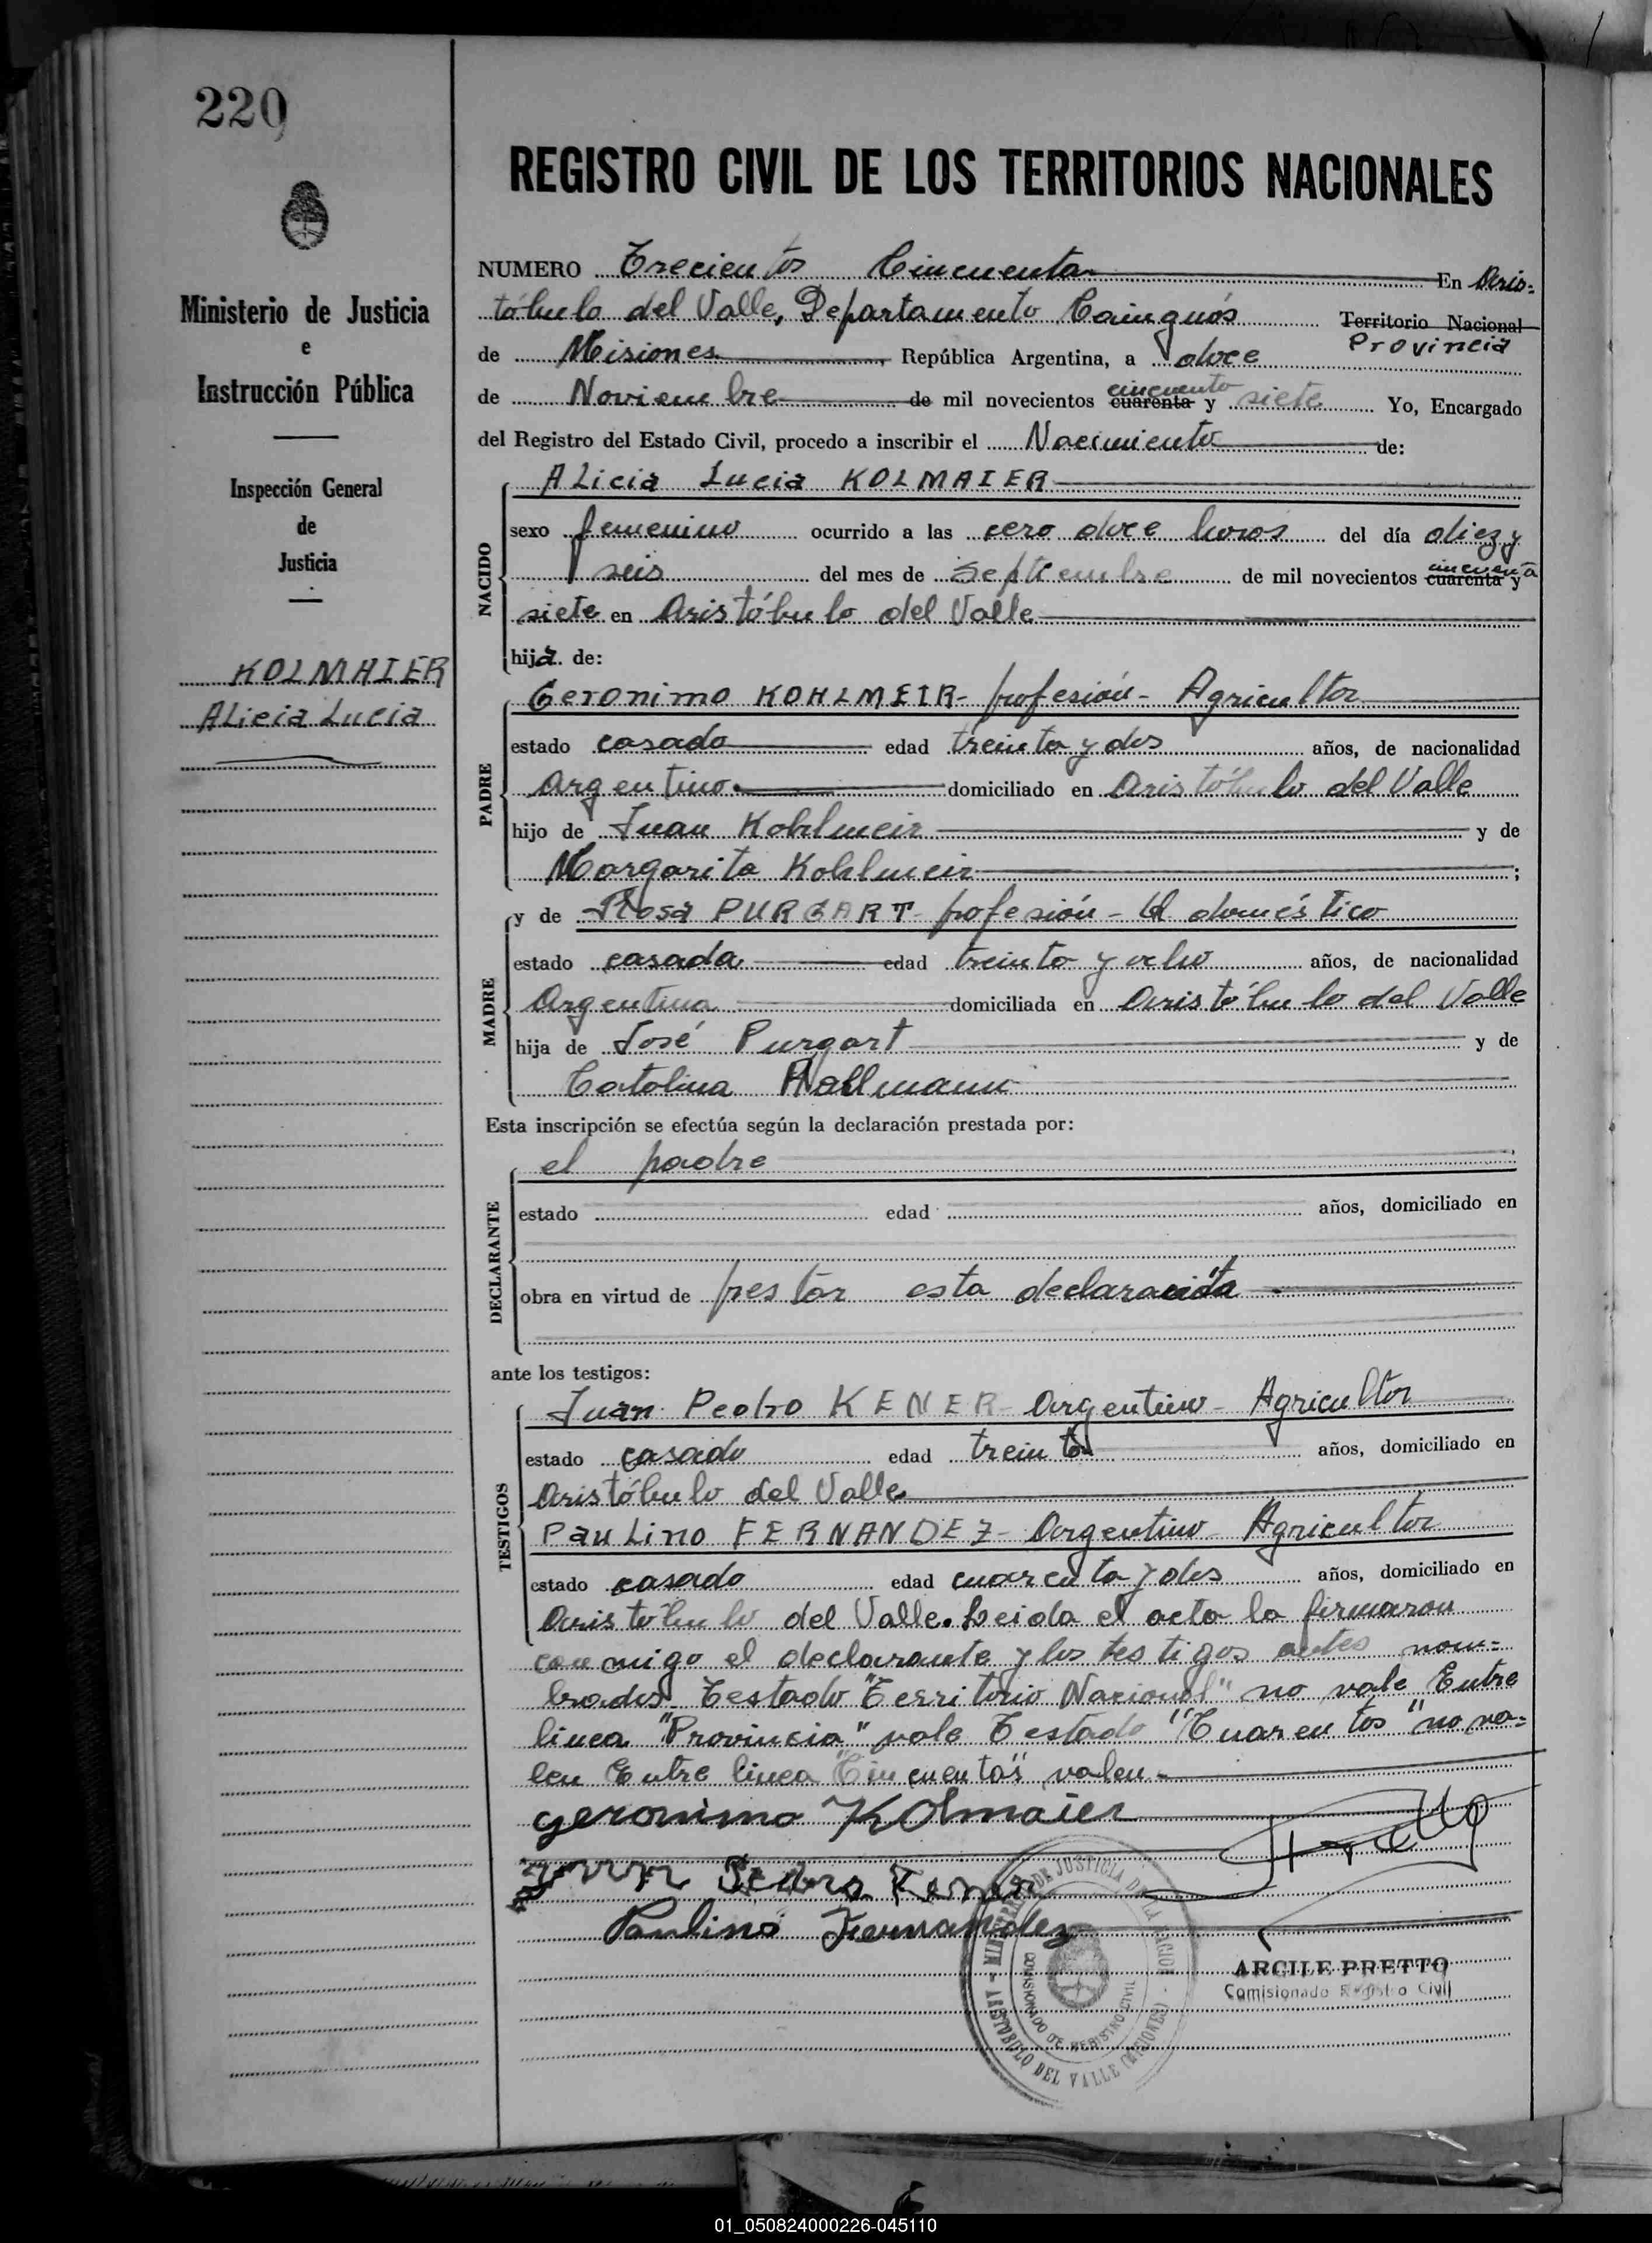 220
Ministerio de Justicia
e
Instrucción Pública
Inspección General
de
Justicia
KOLMAIER
Alicia Lucia
REGISTRO CIVIL DE LOS TERRITORIOS NACIONALES
NUMERO Trecientos Cincuenta En Aris-
tóbulo del Valle, Departamento Cainguás Territorio Nacional
Provincia
de Misiones, República Argentina, a doce
de Noviembre de mil novecientos cuarenta cincuenta y siete Yo, Encargado
del Registro del Estado Civil, procedo a inscribir el Nacimiento de:
NACIDO
Alicia Lucia KOLMAIER
sexo femenino ocurrido a las cero doce horas del día diez y
seis del mes de Septiembre de mil novecientos cuarenta cincuenta y
siete en Aristóbulo del Valle
hija de:
PADRE
Geronimo KOHLMEIR- profesión- Agricultor
estado casado edad treinta y dos años, de nacionalidad
Argentino domiciliado en Aristóbulo del Valle
hijo de Juan Kohlmeir y de
Margarita Kohlmeir;
MADRE
y de Rosa PURGART- profesión- Q domestico
estado casada edad treinta y ocho años, de nacionalidad
Argentina domiciliada en Aristóbulo del Valle
hija de José Purgart y de
Catolina
Esta inscripción se efectúa según la declaración prestada por:
DECLARANTE
el padre
estado edad años, domiciliado en
obra en virtud de prestar esta declaración
ante los testigos:
TESTIGOS
Juan Pedro KENER- Argentino- Agricultor
estado casado edad treinta años, domiciliado en
Aristóbulo del Valle
Paulino FERNANDEZ- Argentino- Agricultor
estado casado edad cuarenta y dos años, domiciliado en
Aristóbulo del Valle. Leida el acta la firmaron
conmigo el declarante y los testigos antes nom-
brados- Testado "Territorio Nacional" no vale Entre
linea "Provincia" vale Testado "Cuarentas" no va-
len Entre linea "Cincuentas" valen-
geronimo Kolmaier
Juan Pedro Kener
Paulino Fernandez
MINISTERIO DE JUSTICIA DE LA NACION
COMISIONADO DE REGISTRO CIVIL
ARISTOBULO DEL VALLE (MISIONES)
ARCILE PRETTO
Comisionado Registro Civil
01_050824000226-045110